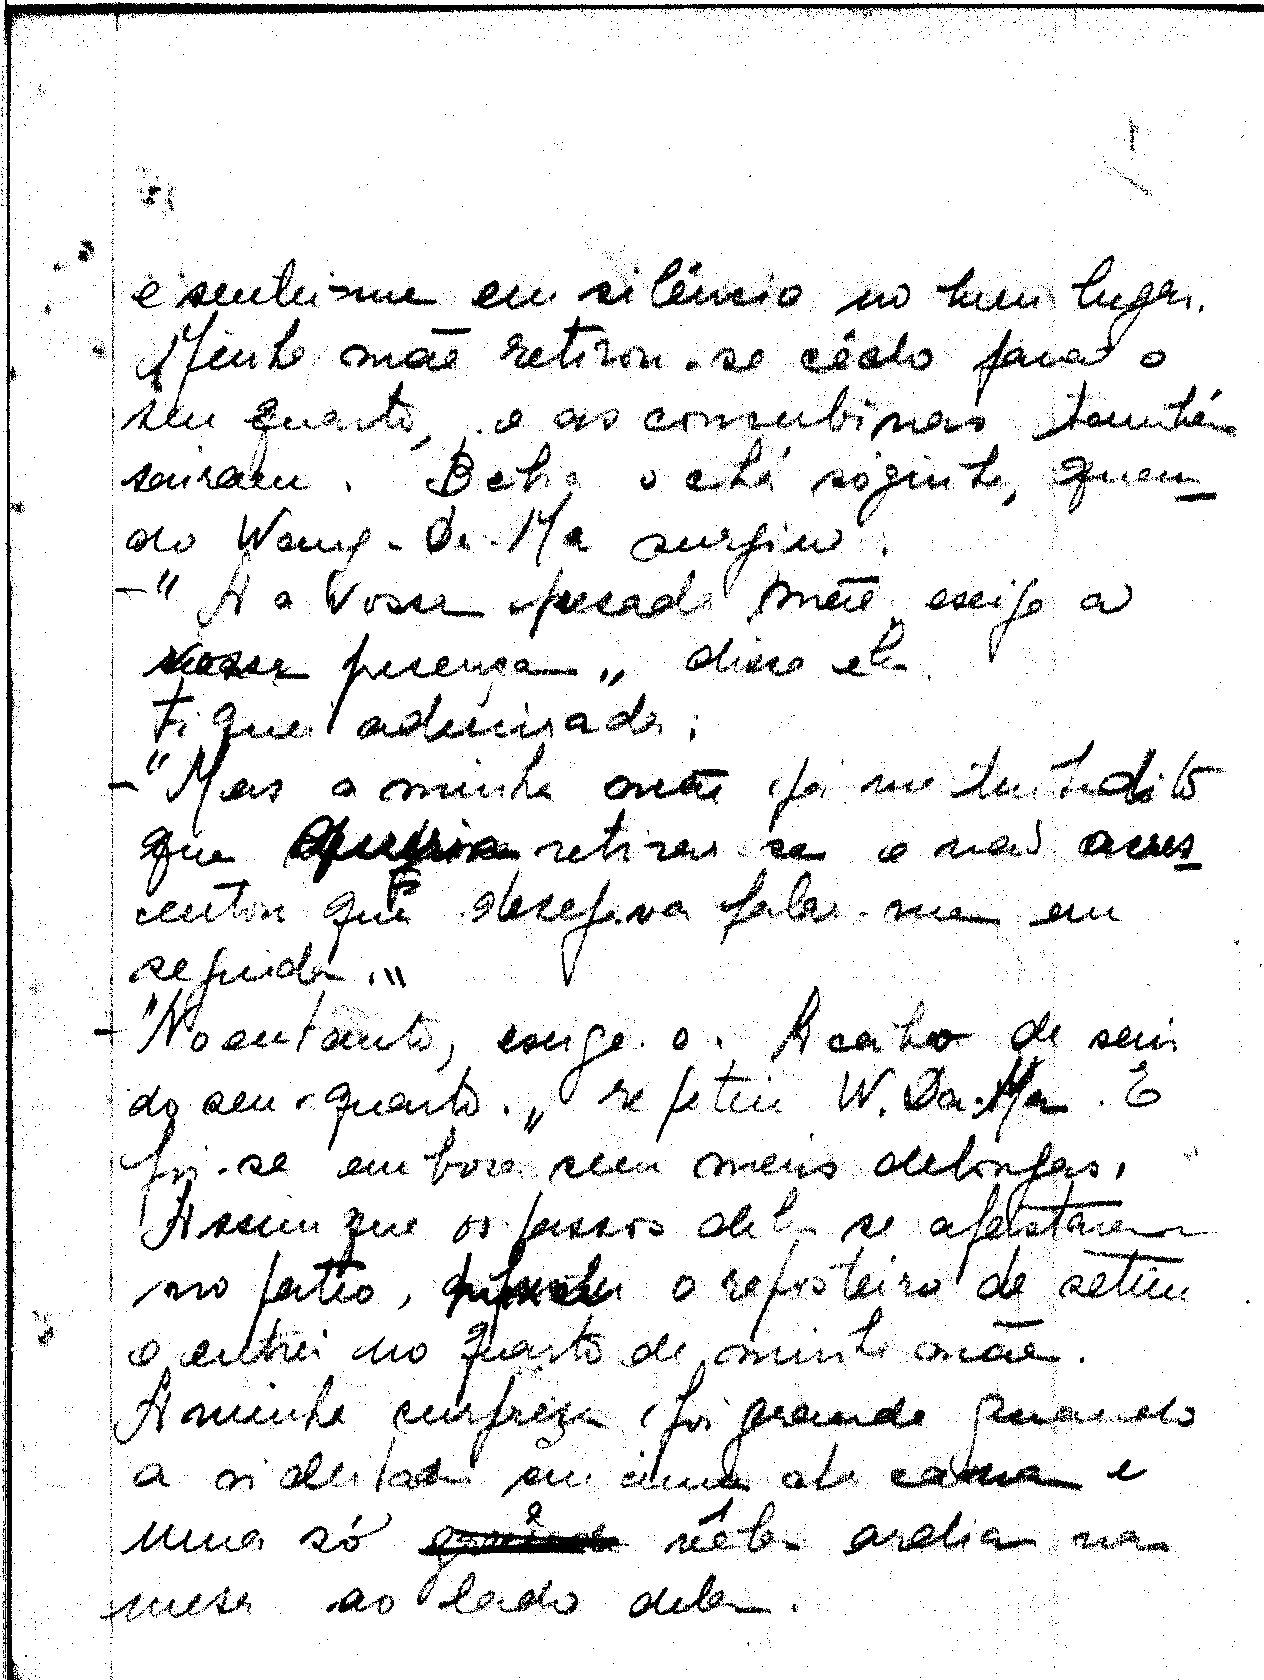 e sentei-me em silêncio no meu lugar.
Minha mãe retirou-se cêdo para o
seu quarto, e as concubinas também
sairam. Bebia o chá sòzinha, quan-
do Wang-Da-Ma surgiu.
-"A a Vossa pesada mãe exige a
vossa presença„ disse ela.
Fiquei admirada:
-"Mas a minha mãe já me tinha dito
que queria retirar-se e não acres-
centou que desejava falar-me em
seguida.„
-"No entanto, exige-o. Acabo de sair
do seu quarto.„ repetiu W. Da-Ma. E
foi-se embora sem mais delongas.
Assim que os passos dela se afastaram
no pátio, o reposteiro de setim
e entrei no quarto de minha mãe.
A minha surpreza foi grande quando
a vi deitada em cima da cama e
uma só vela ardia na
mesa ao lado dela.